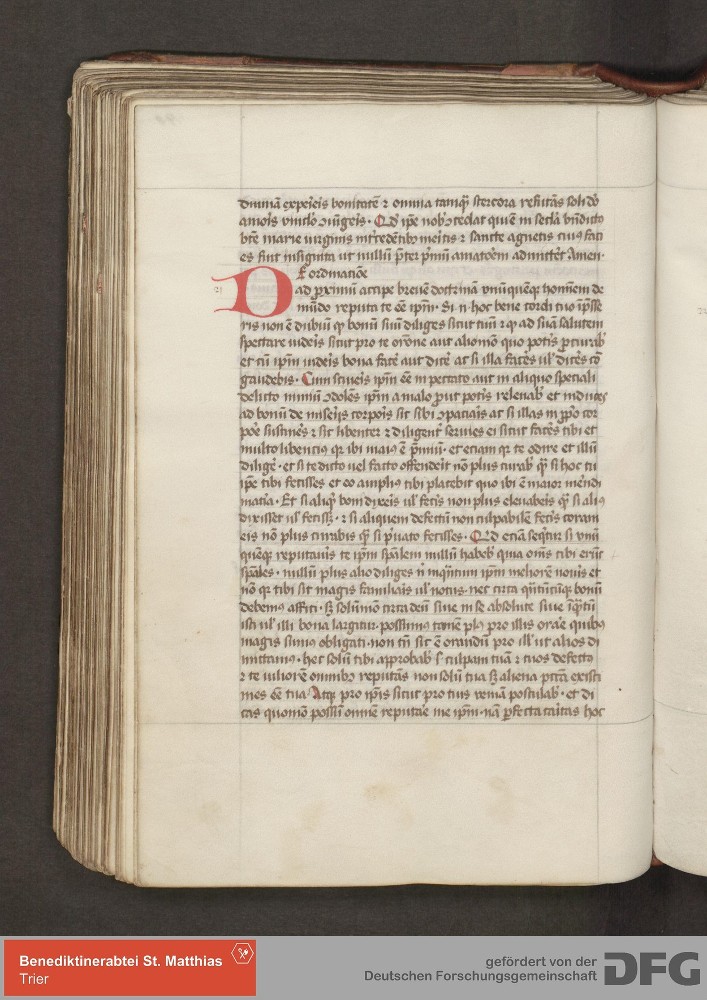 diuinā experieris bonitatē ⁊ omnia tamqͫ stercora refutās solidʼo
amoris vinclo ɔiūgeris · Qdʼ ipē nobʼ ɔcedat qui ē in secla bn̄dictʼ
bt̄e marie uirginis int̄cedētibʼ meritis ⁊ sancte agnetis cuiʼ faci
es sint insignita ut nullū p̄ter ip̄m amatorem admittēt Amen ·
E ordinatiōe
21
D ad proximū accipe breuē doctrinā vnūquēqʒ hominem de
mūdo reputa te eē ip̄m · Si n̄ hoc bene cordi tuo īpsse
ris non ē dubiū qʼ bonū suū diliges sicut tuū ⁊ qʼ ad suā salutem
spectare uideris sicut pro te orōne aut aliomō quo potis pcurabʼ
et cū ip̄m uideris bona facē aut dicē ac si illa facēs ulʼ dicēs cō
gaudebis · Cum sciueris ip̄m eē in peccato aut in aliquo speciali
delicto nimiū ɔdolēs ip̄m a malo prout potis releuabʼ et induces
ad bonū de miserijs corporis sic sibi ɔpaciaris ac si illas in prʼo cor
pore sustinēs ⁊ sic libenter ⁊ diligentʼ seruies ei sicut facēs tibi et
multo libenciʼ qʒ ibi maiʼ ē p̄miū · et eciam qʒ te odire et illū
diligē · et si te dicto uel facto offenderit nō plus curabʼ qͫ si hoc tu
ipē tibi fecisses et eo ampliʼ tibi placebit quo ibi ē maior merēdi
matʼia · Et si aliqʼ boni dixeris ulʼ fecʼis non plus eleuaberis qͫ si aliʼ
dixisset ulʼ fecissʒ · ⁊ si aliquem defectū non culpabilē fecʼis coram
eis nō plus curabis qͫ si p̄uato fecisses · Qdʼ eciā seqtʼur si vnū
quēqʒ reputaūis te ip̄m sp̄alem nullū habebʼ quia om̄s tibi erūt
sp̄ales · nullū plus alio diliges n̄ inqͫntum ip̄m meliorē nouis et
nō qʒ tibi sit magis familiaris ulʼ notus · nec circa qͫntūcūqʒ bonū
debemʼ affici · sʒ solūmō circa deū siue in se absolute siue īqͫtū
isti ulʼ illi bona largitur · possumʼ tamē plʼ pro illis orare quibʼ
magis sumʼ obligati · non tn̄ sic ē orandū pro illʼ ut alios di
mittamʼ · hec solū tibi approbabʼ sʼ culpam tuā ⁊ tuos defectʼ
⁊ te uiliorē omnibʼ reputās non solū tua sʒ aliena pctā existi
mes eē tua · Atqʒ pro ip̄is sicut pro tuis veniā postulabʼ · et di
cas quomō possū omnē reputare me ip̄m · nā pfecta caritas hoc
Benediktinerabtei St. Matthias
Trier
gefördert von der
Deutschen Forschungsgemeinschaft
DFG